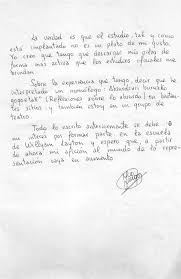 La verdad es que el estudio tal y como
está implantado no es un plato de mi gusto.
Yo creo que tengo que descargar mis pilas de
forma más activa que los estudios oficiales me
brindan.
Sobre la experiencia que tengo, decir que he
interpretado un monólogo
(Reflexiones sobre la
y también estoy en un grupo de
teatro.
Todo lo escrito anteriormente se debe a
mi interés por formar parte en la escuela
de William Layton y espero que, a partir
de ahora mi afición al mundo de la repre-
sentación vaya en aumento